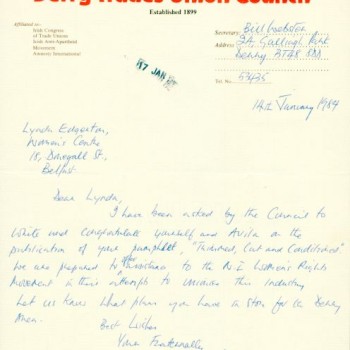 Derry Trades Union Council
Established 1899
Affiliated to:-
Irish Congress
of Trade Unions
Irish Anti-Apartheid
Movement
Amnesty International
Secretary: Bill Webster
Address:
Derry BT48
Tel No. 53435
17 JAN
14th January 1984
Lynda Edgerton,
Women's Centre
18, Donegall St,
Belfast
Dear Lynda,
I have been asked by the Council to
write and congratulate yourself and
publication of your pamphlet, "Trimmed, Cut and Conditioned"
We are prepared to to the N.I Women's Rights
Movement in their attempts to unionise this industry
Let us know what plans you have in store for in Derry
Best Wishes
Yours Fraternally